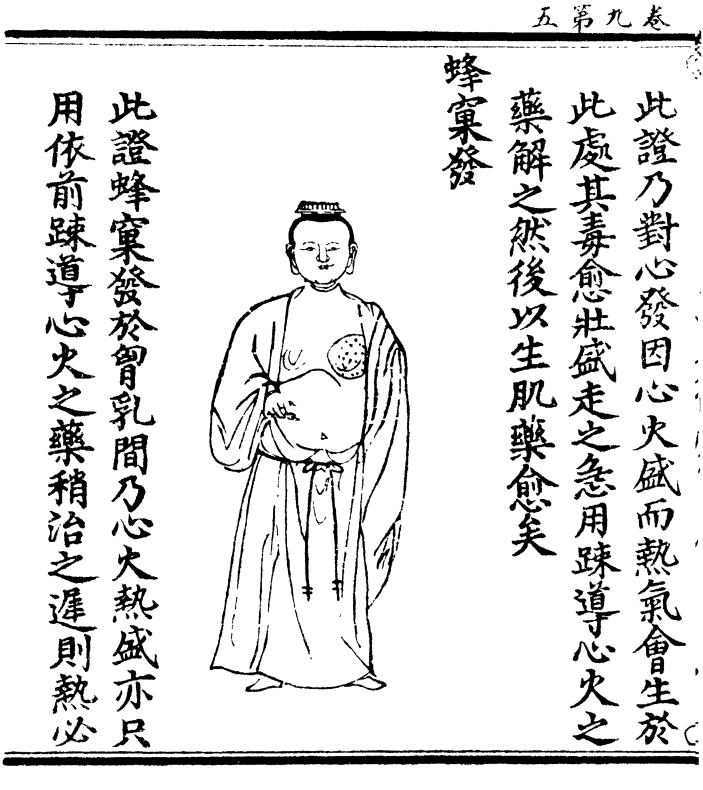 卷九第五
此證乃對心發因心火盛而熱氣會生於
此處其毒愈壯盛走之急用踈導心火之
藥解之然後以生肌藥愈矣
蜂窠發
此證蜂窠發於胷乳間乃心火熱盛亦只
用依前踈導心火之藥稍治之遲則熱必